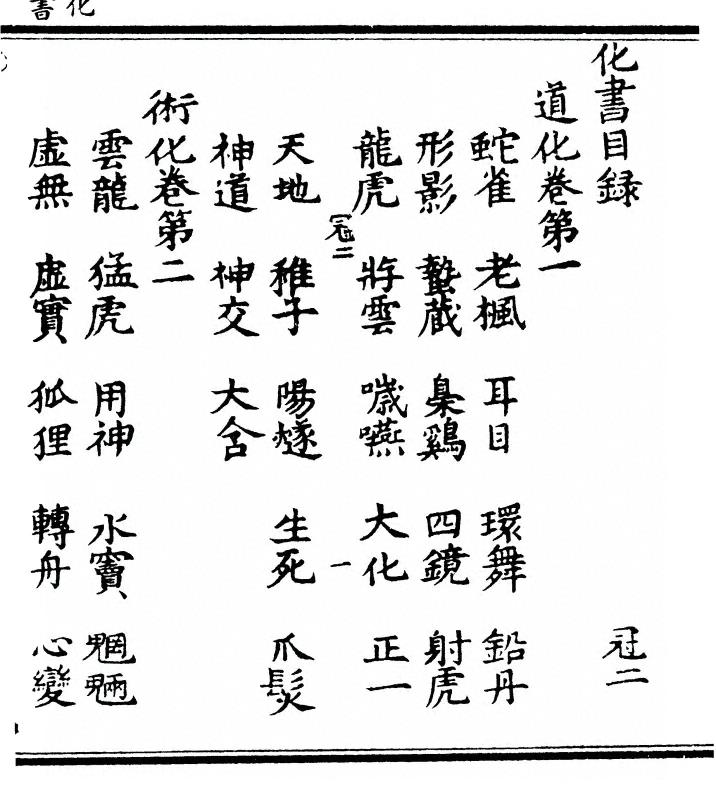 化書
化書目録 冠二
道化卷第一
蛇雀 老楓 耳目 環舞 鉛丹
形影 蟄蔵 梟鷄 四鏡 射虎
龍虎 斿雲 噦嚥 大化 正一
冠二 一
天地 稚子 陽燧 生死 爪髮
神道 神交 大含
術化卷第二
雲龍 猛虎 用神 水竇 魍魎
虛無 虛實 狐狸 轉舟 心變